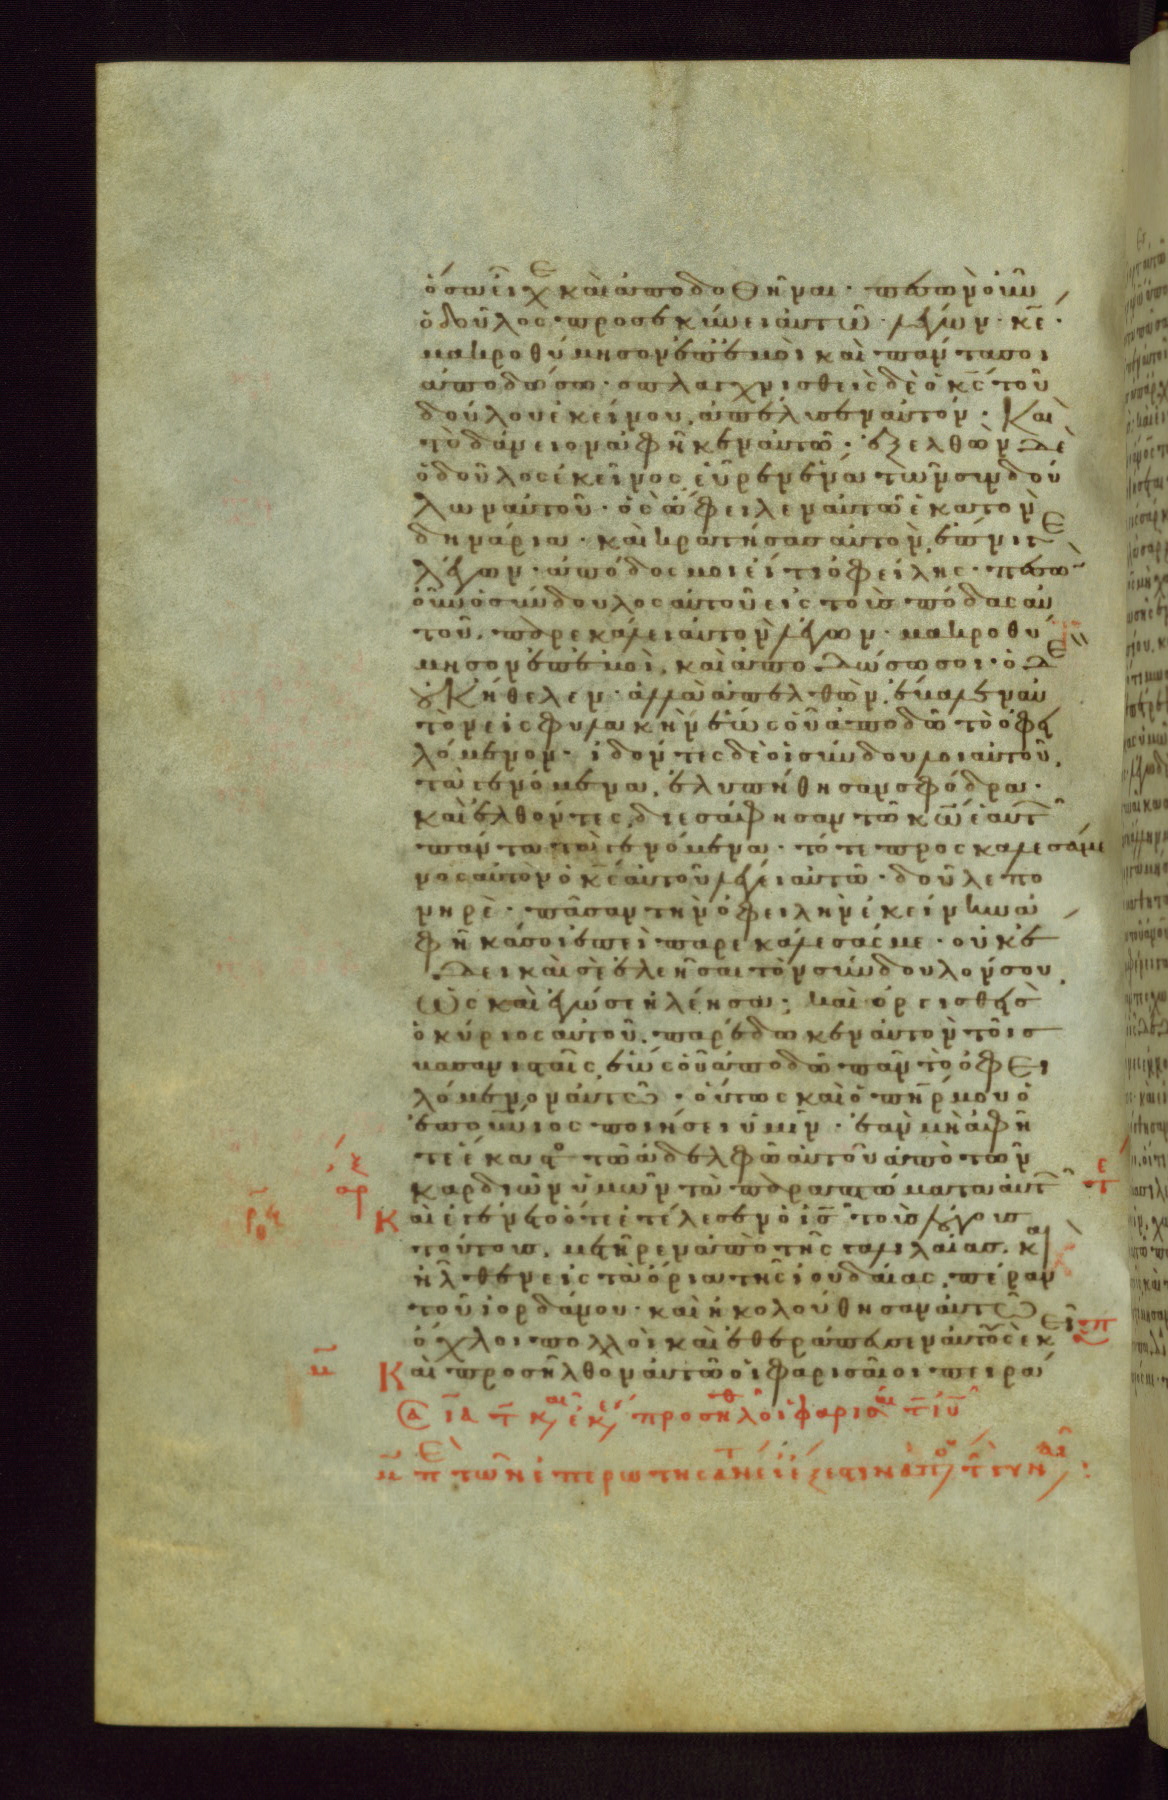 ὅσα εἶχε καὶ ἀποδοθῆναι· πεσὼν οὖν
ὁ δοῦλος προσεκύνει αὐτῶ λέγων· κε̅·
μακροθύμησον ἐπ' ἐμοὶ καὶ πάντα σοι
ἀποδώσω· σπλαγχνισθεὶς δὲ ὁ κς̅ τοῦ
δούλου ἐκείνου, ἀπέλυσεν αὐτόν· Καὶ
τὸ δάνειον ἀφῆκεν αὐτῶ· ἐξελθὼν δὲ
ὁ δοῦλος ἐκεῖνος, εὗρεν ἕνα τῶν συνδού
λων αὐτοῦ· ὃς ὤφειλεν αὐτῶ ἑκατὸν
δηνάρια· καὶ κρατήσας αὐτὸν, ἔπνιγε
λέγων· ἀπόδος μοι εἴ τι ὀφείλης· πεσὼν
οὖν ὁ σύνδουλος αὐτοῦ εἰς τοὺς πόδας αὐ
τοῦ, παρεκάλει αὐτὸν λέγων· μακροθύ
μησον ἐπ' ἐμοὶ, καὶ ἀποδώσω σοι· ὁ δὲ
οὐκ ἤθελεν· ἀλλὰ ἀπελθὼν, ἔβαλεν αὐ
τὸν εἰς φυλακὴν ἕως οὗ ἀποδῶ τὸ ὀφει
λόμενον· ἰδόντες δὲ οἱ σύνδουλοι αὐτοῦ,
τὰ γενόμενα, ἐλυπήθησαν σφόδρα·
καὶ ἐλθόντες, διεσάφησαν τῶ κω̅ ἑαυτῶν
πάντα τὰ γενόμενα· τότε προσκαλεσάμε
νος αὐτὸν ὁ κς̅ αὐτοῦ λέγει αὐτῶ· δοῦλε πο
νηρὲ· πᾶσαν τὴν ὀφειλὴν ἐκείνην ἀ
φῆκά σοι ἐπεὶ παρεκάλεσάς με· οὐκ ἔ
δει καὶ σὲ ἐλεῆσαι τὸν σύνδουλόν σου
ὡς καὶ ἐγώ σε ἠλέησα; καὶ ὀργισθεὶς
ὁ κύριος αὐτοῦ, παρέδωκεν αὐτὸν τοῖς
βασανισταῖς, ἕως οὗ ἀποδῶ πᾶν τὸ ὀφει
λόμενον αὐτῶ· οὕτως καὶ ὁ πηρ̅ μου ὁ
ἐπουνιος ποιήσει ὑμῖν· ἐὰν μὴ ἀφῆ
τε ἕκαστος τῶ ἀδελφῶ αὐτοῦ ἀπὸ τῶν
καρδιῶν ὑμῶν τὰ παραπτώματα αὐτῶν
Καὶ ἐγένετο ὅτε ἐτέλεσεν ὁ ις̅ τοὺς λόγους
τούτους, μετῆρεν ἀπὸ τῆς γαλιλαίας· καὶ
ἦλθεν εἰς τὰ ὅρια τῆς ἰουδαίας, πέραν
τοῦ ἰορδάνου· καὶ ἠκολούθησαν αὐτῶ
ὄχλοι πολλοὶ καὶ ἐθεράπευσεν αὐτοὺς ἐκεῖ
Καὶ προσῆλθον αὐτῶ οἱ φαρισαῖοι πειρά